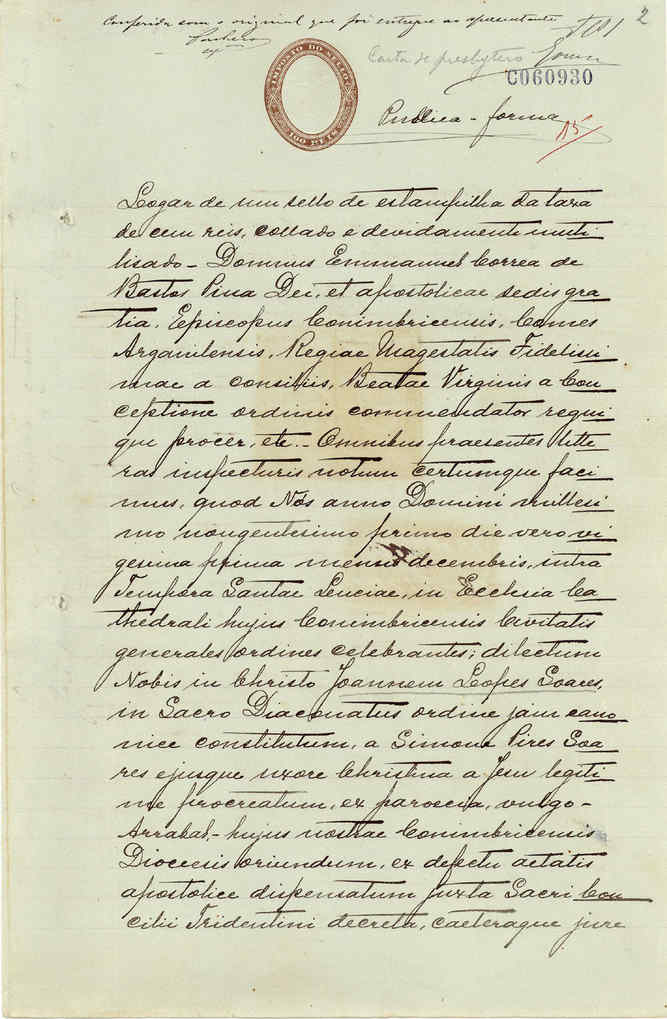 Conferida com o original que foi entregue ao apresentante
2
Carta de presbytero
IMPOSTO DO SELLO
100 REIS
C060930
Publica-forma
15
Logar de um sello de estampilha da taxa
de cem reis, collado e devidamente inuti
lisado - Domnus Emmanuel Correa de
Bastos Pina Dei, et apostolicae sedis gra
tia, Episcopus Conimbricensis, Comes
Arganilensis, Regiae Magestatis Fidelissi
mae a consiliis, Beatae Virginis a Con
ceptione ordinis commendator regni
que procer, etc. - Omnibus praesentes litte
ras inspecturis notum certumque faci
mus, quod Nós anno Domini millesi
mo nongentesimo primo die vero vi
gesima prima mensis decembris, intra
Tempora Santae Luciae, in Ecclesia Ca
thedrali hujus Conimbricensis Civitatis
generales ordines celebrantes; dilectum
Nobis in Christo Joannem Lopes Soares,
in Sacro Diaconatus ordine jam cano
nice constitutum, a Simone Pires Soa
res ejusque uxore Christina a Jesu legiti
me procreatum, ex paroecia, vulgo -
Arrabal, - hujus nostrae Conimbricensis
Diocesis oriundum, ex defectu aetatis
apostolice dispensatum juxta Sacri Con
cilii Tridentini decreta, caeteraque jure